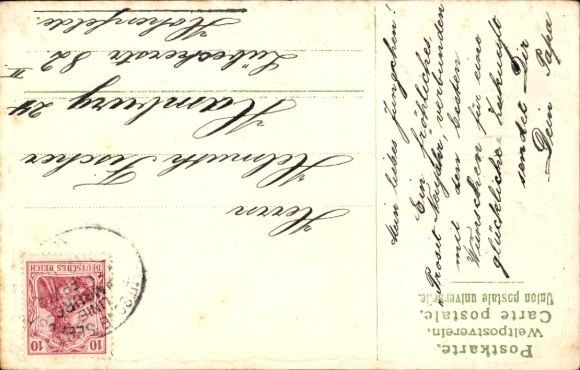 Postkarte.
Weltpostverein.
Carte postale.
Union postale universelle.
Mein liebes Jungchen!
Ein fröhliches
"Prosit Neujahr", verbunden
mit den besten
Wünschen für eine
glückliche Zukunft
sendet Dir
Dein Papa
Herrn
Helmuth Fischer
Hamburg 24
Lübeckerstr 82 II
Hohenfelde.
DEUTSCHES REICH
10 10
LINIE
HAMBURG